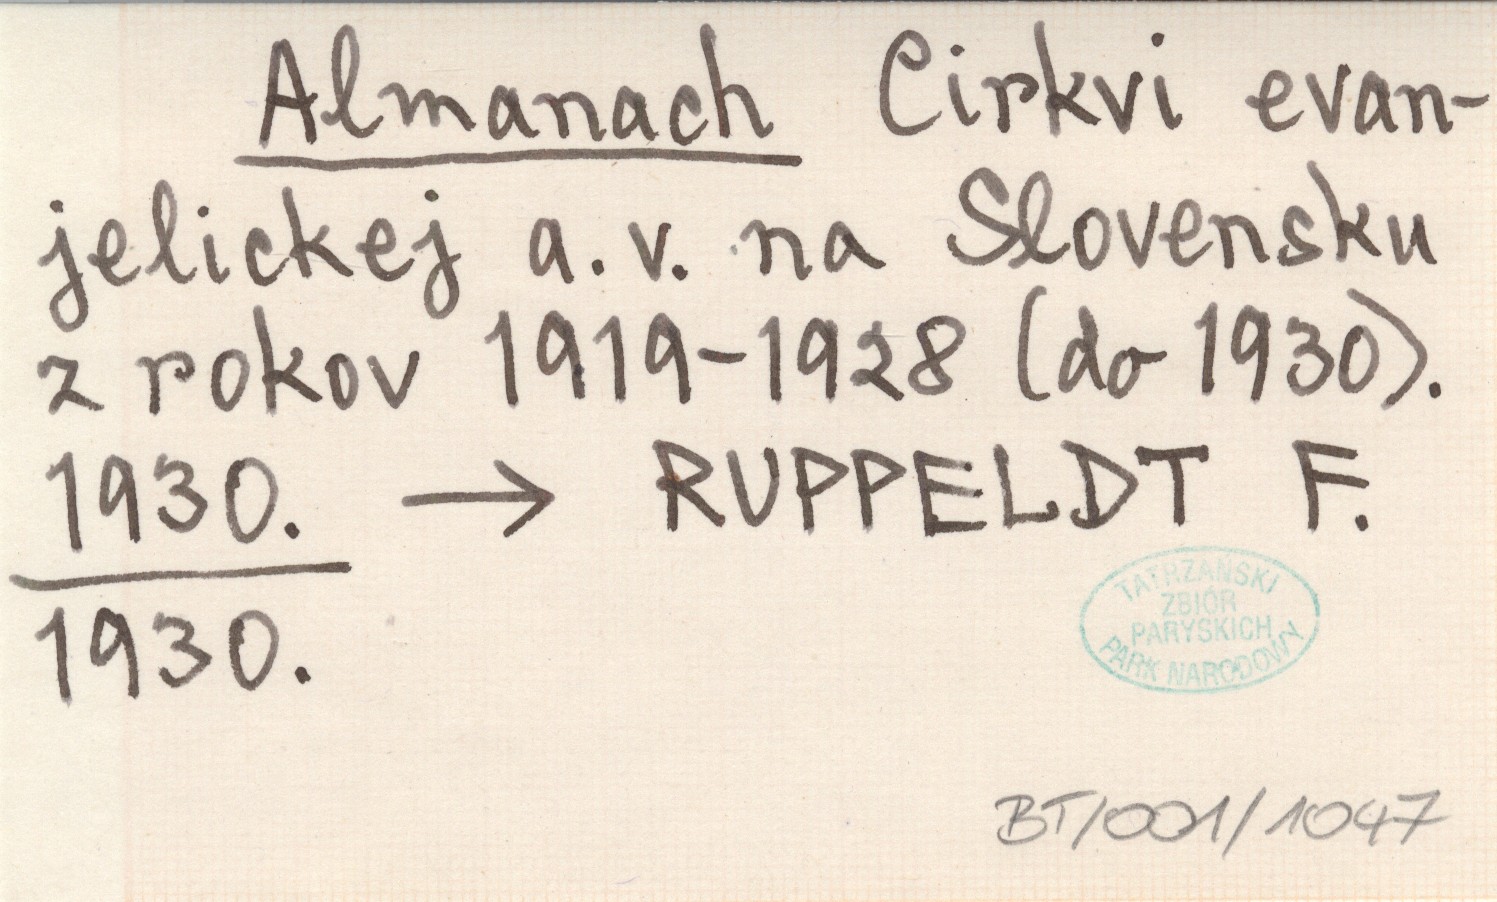 Almanach Cirkvi evan-
jelickej a.v. na Slovensku
z rokov 1919-1928 (do 1930).
1930. → RUPPELDT F.
1930.
TATRZAŃSKI
ZBIÓR
PARYSKICH
PARK NARODOWY
BT/001/1047